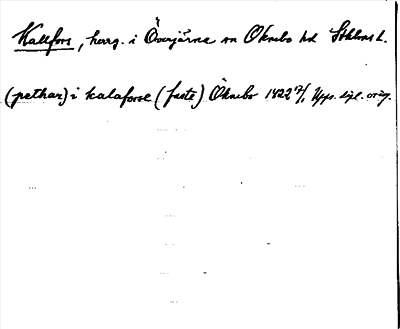 Kallfors, herrg. i Överjärna sn Öknebo hd Sthlms l.
(pethar) i kalaforse (faste) Öknebo 1422 7/1 Upps. dipl. orig.